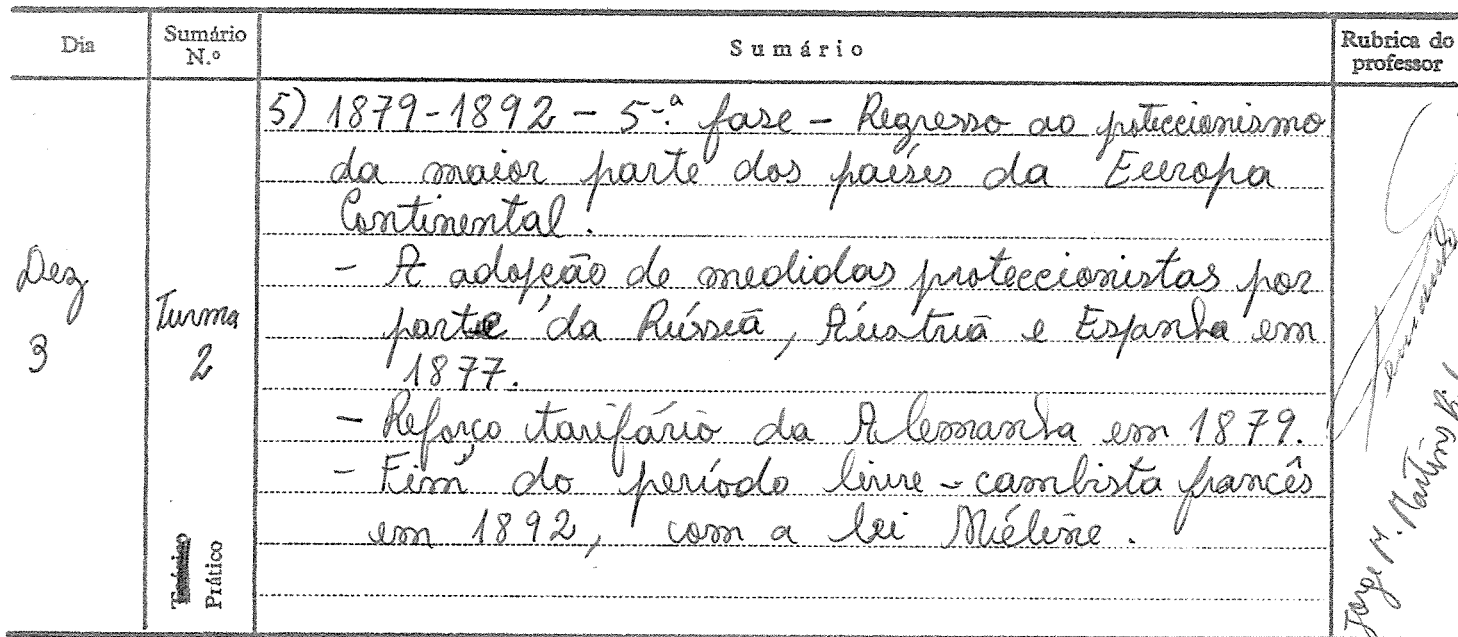 Dia
Sumário N.º
Sumário
Rubrica do professor
Dez
3
Turma
2
Prático
5) 1879-1892 - 5.ª fase - Regresso ao proteccionismo
da maior parte dos países da Europa
Continental.
- A adopção de medidas proteccionistas por
parte da Rússia, Áustria e Espanha em
1877.
- Reforço tarifário da Alemanha em 1879.
- Fim do período livre-cambista francês
em 1892, com a lei Méline.
Jorge M. Martins